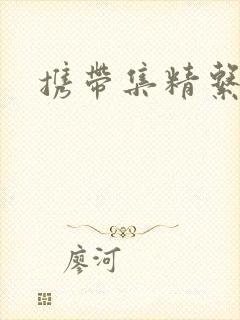 携带集精繫
廖河